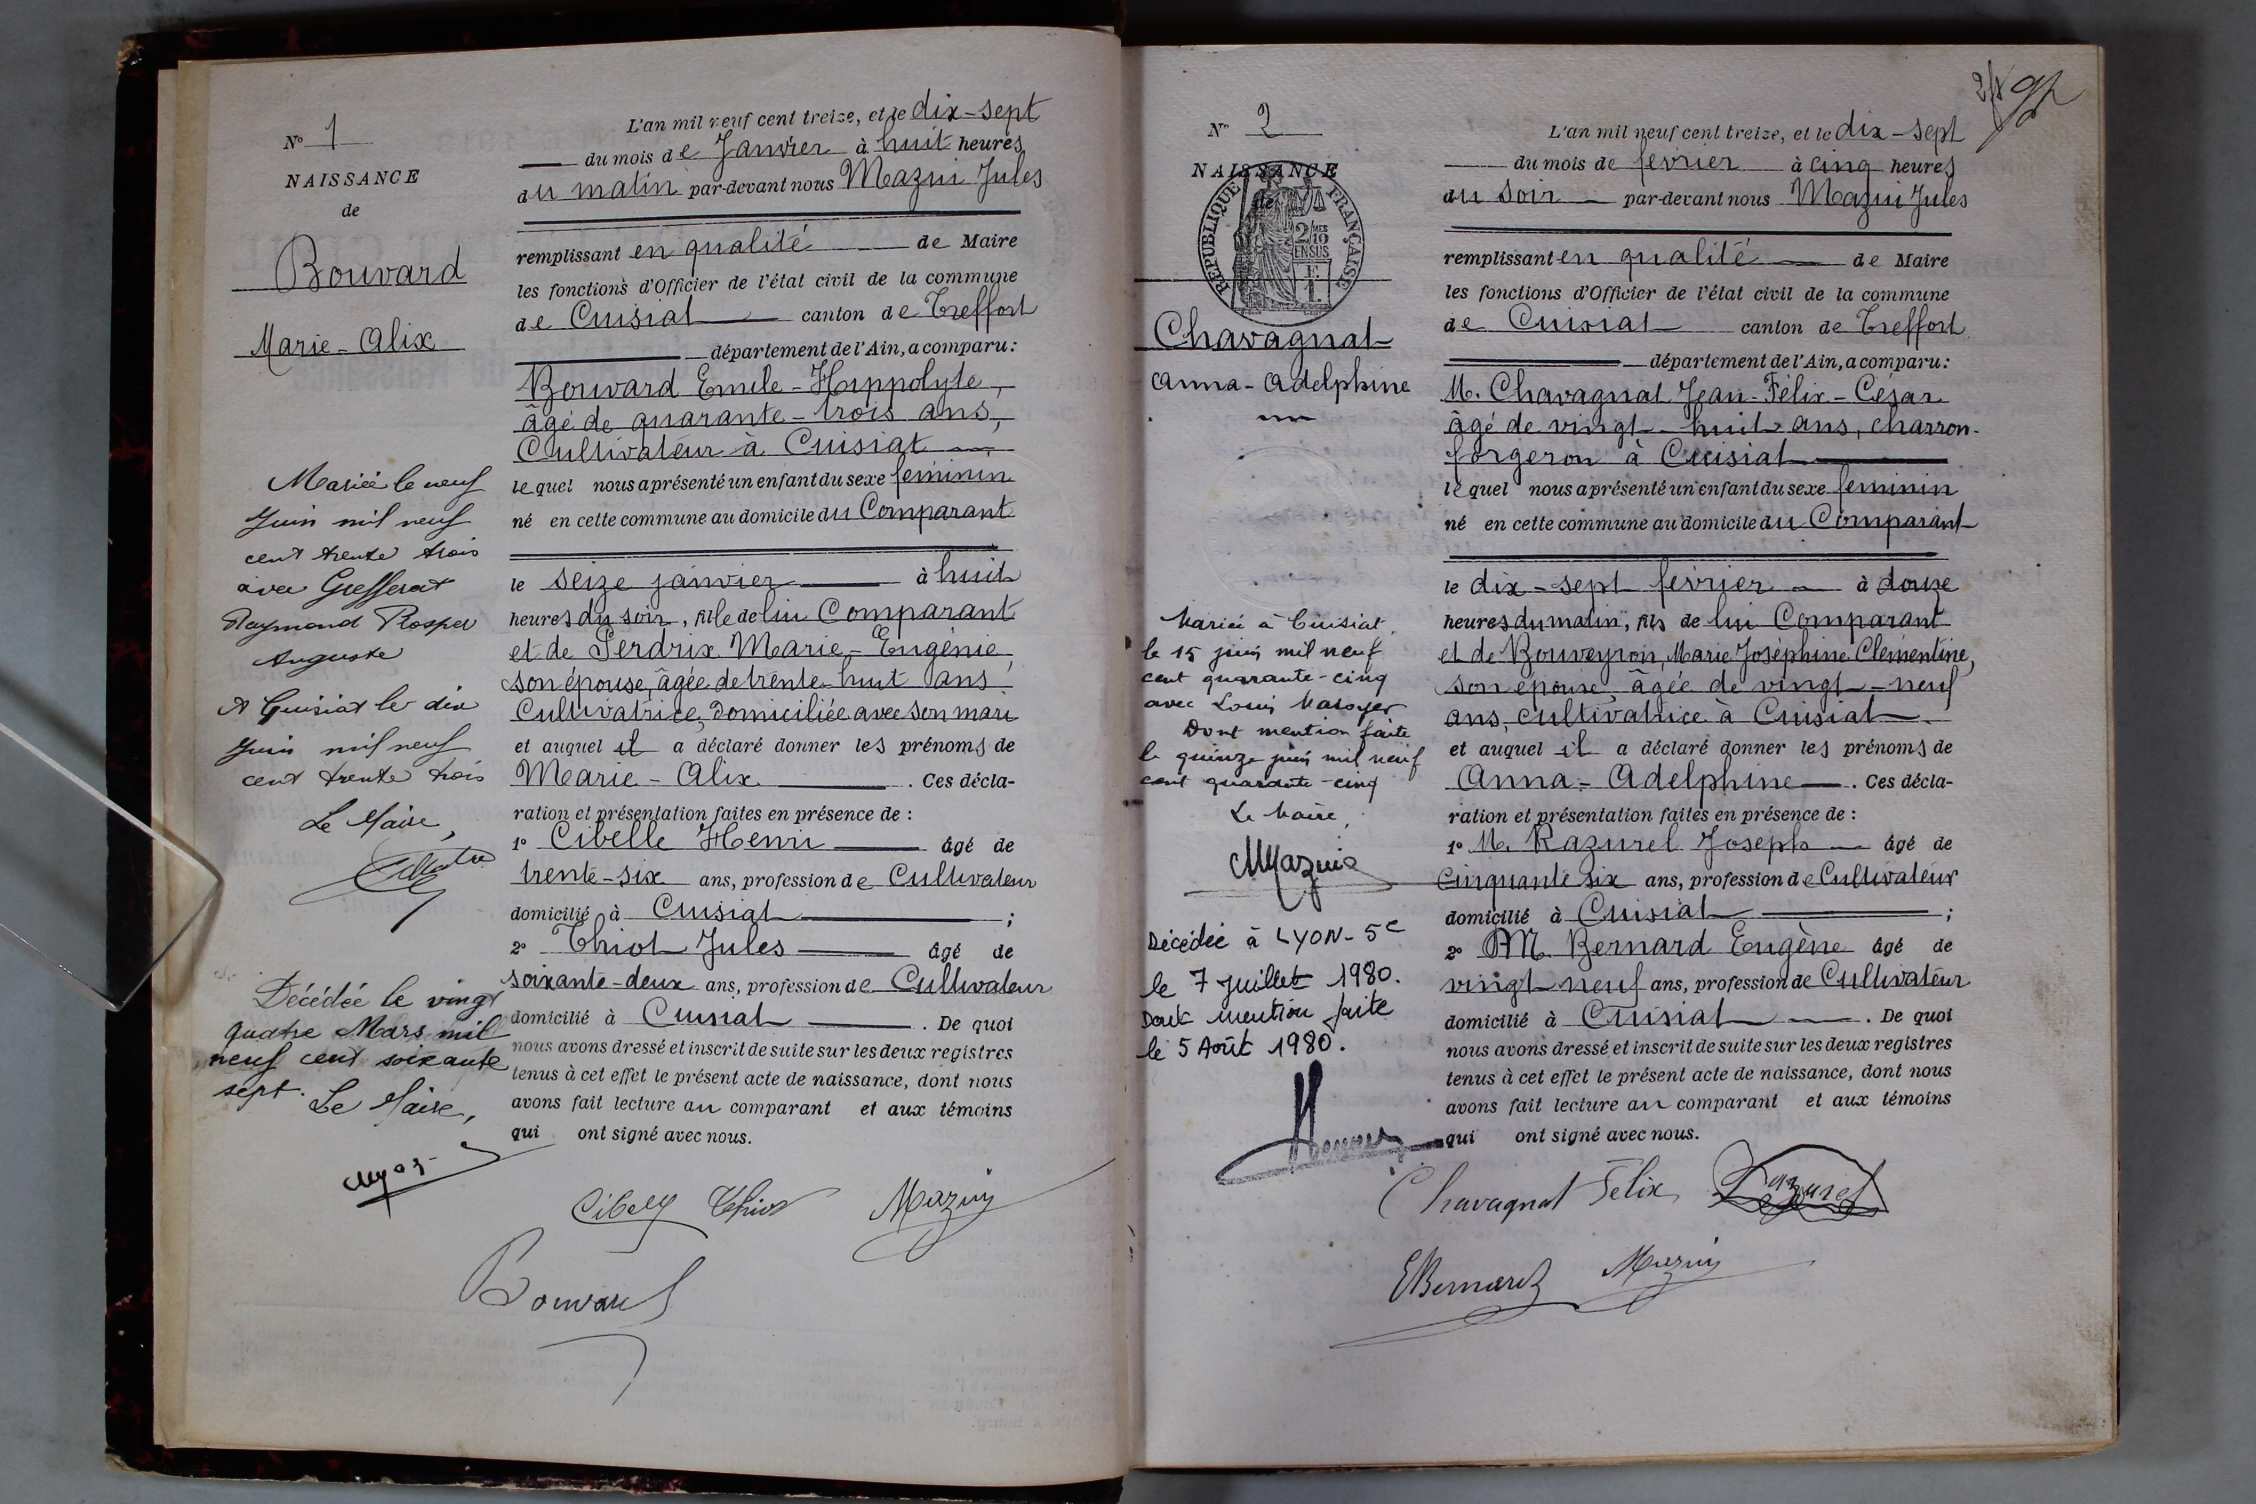 N° 1
NAISSANCE
de
Bouvard
Marie-Alix
Mariée le neuf
Juin mil neuf
cent trente trois
avec Gresserat
Raymond Prosper
Auguste
A Cuisiat le dix
Juin mil neuf
cent trente trois
Le Maire,
Décédée le vingt
quatre Mars mil
neuf cent soixante
sept. Le Maire,
L'an mil neuf cent treize, et le dix-sept
du mois de Janvier à huit heures
du matin par-devant nous Mazui Jules
remplissant en qualité de Maire
les fonctions d'Officier de l'état civil de la commune
de Cuisiat canton de Treffort
département de l'Ain, a comparu:
Bouvard Emile-Hippolyte,
âgé de quarante-trois ans,
Cultivateur à Cuisiat
lequel nous a présenté un enfant du sexe féminin
né en cette commune au domicile du Comparant
le seize janvier à huit
heures du soir, fille de lui Comparant
et de Perdrix Marie-Eugénie,
son épouse, âgée de trente-huit ans
Cultivatrice, domiciliée avec son mari
et auquel il a déclaré donner les prénoms de
Marie-Alix. Ces décla-
ration et présentation faites en présence de :
1° Cibelle Henri âgé de
trente-six ans, profession de Cultivateur
domicilié à Cuisiat ;
2° Thiot Jules âgé de
soixante-deux ans, profession de Cultivateur
domicilié à Cuisiat. De quoi
nous avons dressé et inscrit de suite sur les deux registres
tenus à cet effet le présent acte de naissance, dont nous
avons fait lecture au comparant et aux témoins
qui ont signé avec nous.
Cibelly Thiot Mazuy
Bouvard
2/
N° 2
NAISSANCE
de
RÉPUBLIQUE FRANÇAISE
2/10
EN SUS
Chavagnat
Anna-Adelphine
Mariée à Cuisiat,
le 15 juin mil neuf
cent quarante-cinq
avec Louis Maroyer
Dont mention faite
le quinze juin mil neuf
cent quarante-cinq
Le Maire,
Mazuis
Décédée à LYON-5e
le 7 juillet 1980.
Dont mention faite
le 5 Août 1980.
L'an mil neuf cent treize, et le dix-sept
du mois de février à cinq heures
du soir par-devant nous Mazui Jules
remplissant en qualité de Maire
les fonctions d'Officier de l'état civil de la commune
de Cuisiat canton de Treffort
département de l'Ain, a comparu:
M. Chavagnat Jean-Félix-César
âgé de vingt-huit ans, charron-
forgeron à Cuisiat
lequel nous a présenté un enfant du sexe féminin
né en cette commune au domicile du Comparant
le dix-sept février à douze
heures du matin, fils de lui Comparant
et de Bouveyron, Marie Joséphine Clémentine,
son épouse âgée de vingt-neuf
ans, cultivatrice à Cuisiat
et auquel il a déclaré donner les prénoms de
Anna-Adelphine. Ces décla-
ration et présentation faites en présence de :
1° M. Razurel Joseph âgé de
cinquante six ans, profession de Cultivateur
domicilié à Cuisiat ;
2° M. Bernard Eugène âgé de
vingt neuf ans, profession de Cultivateur
domicilié à Cuisiat. De quoi
nous avons dressé et inscrit de suite sur les deux registres
tenus à cet effet le présent acte de naissance, dont nous
avons fait lecture au comparant et aux témoins
qui ont signé avec nous.
Chavagnat Félix Razurel
EBernard Mazuy